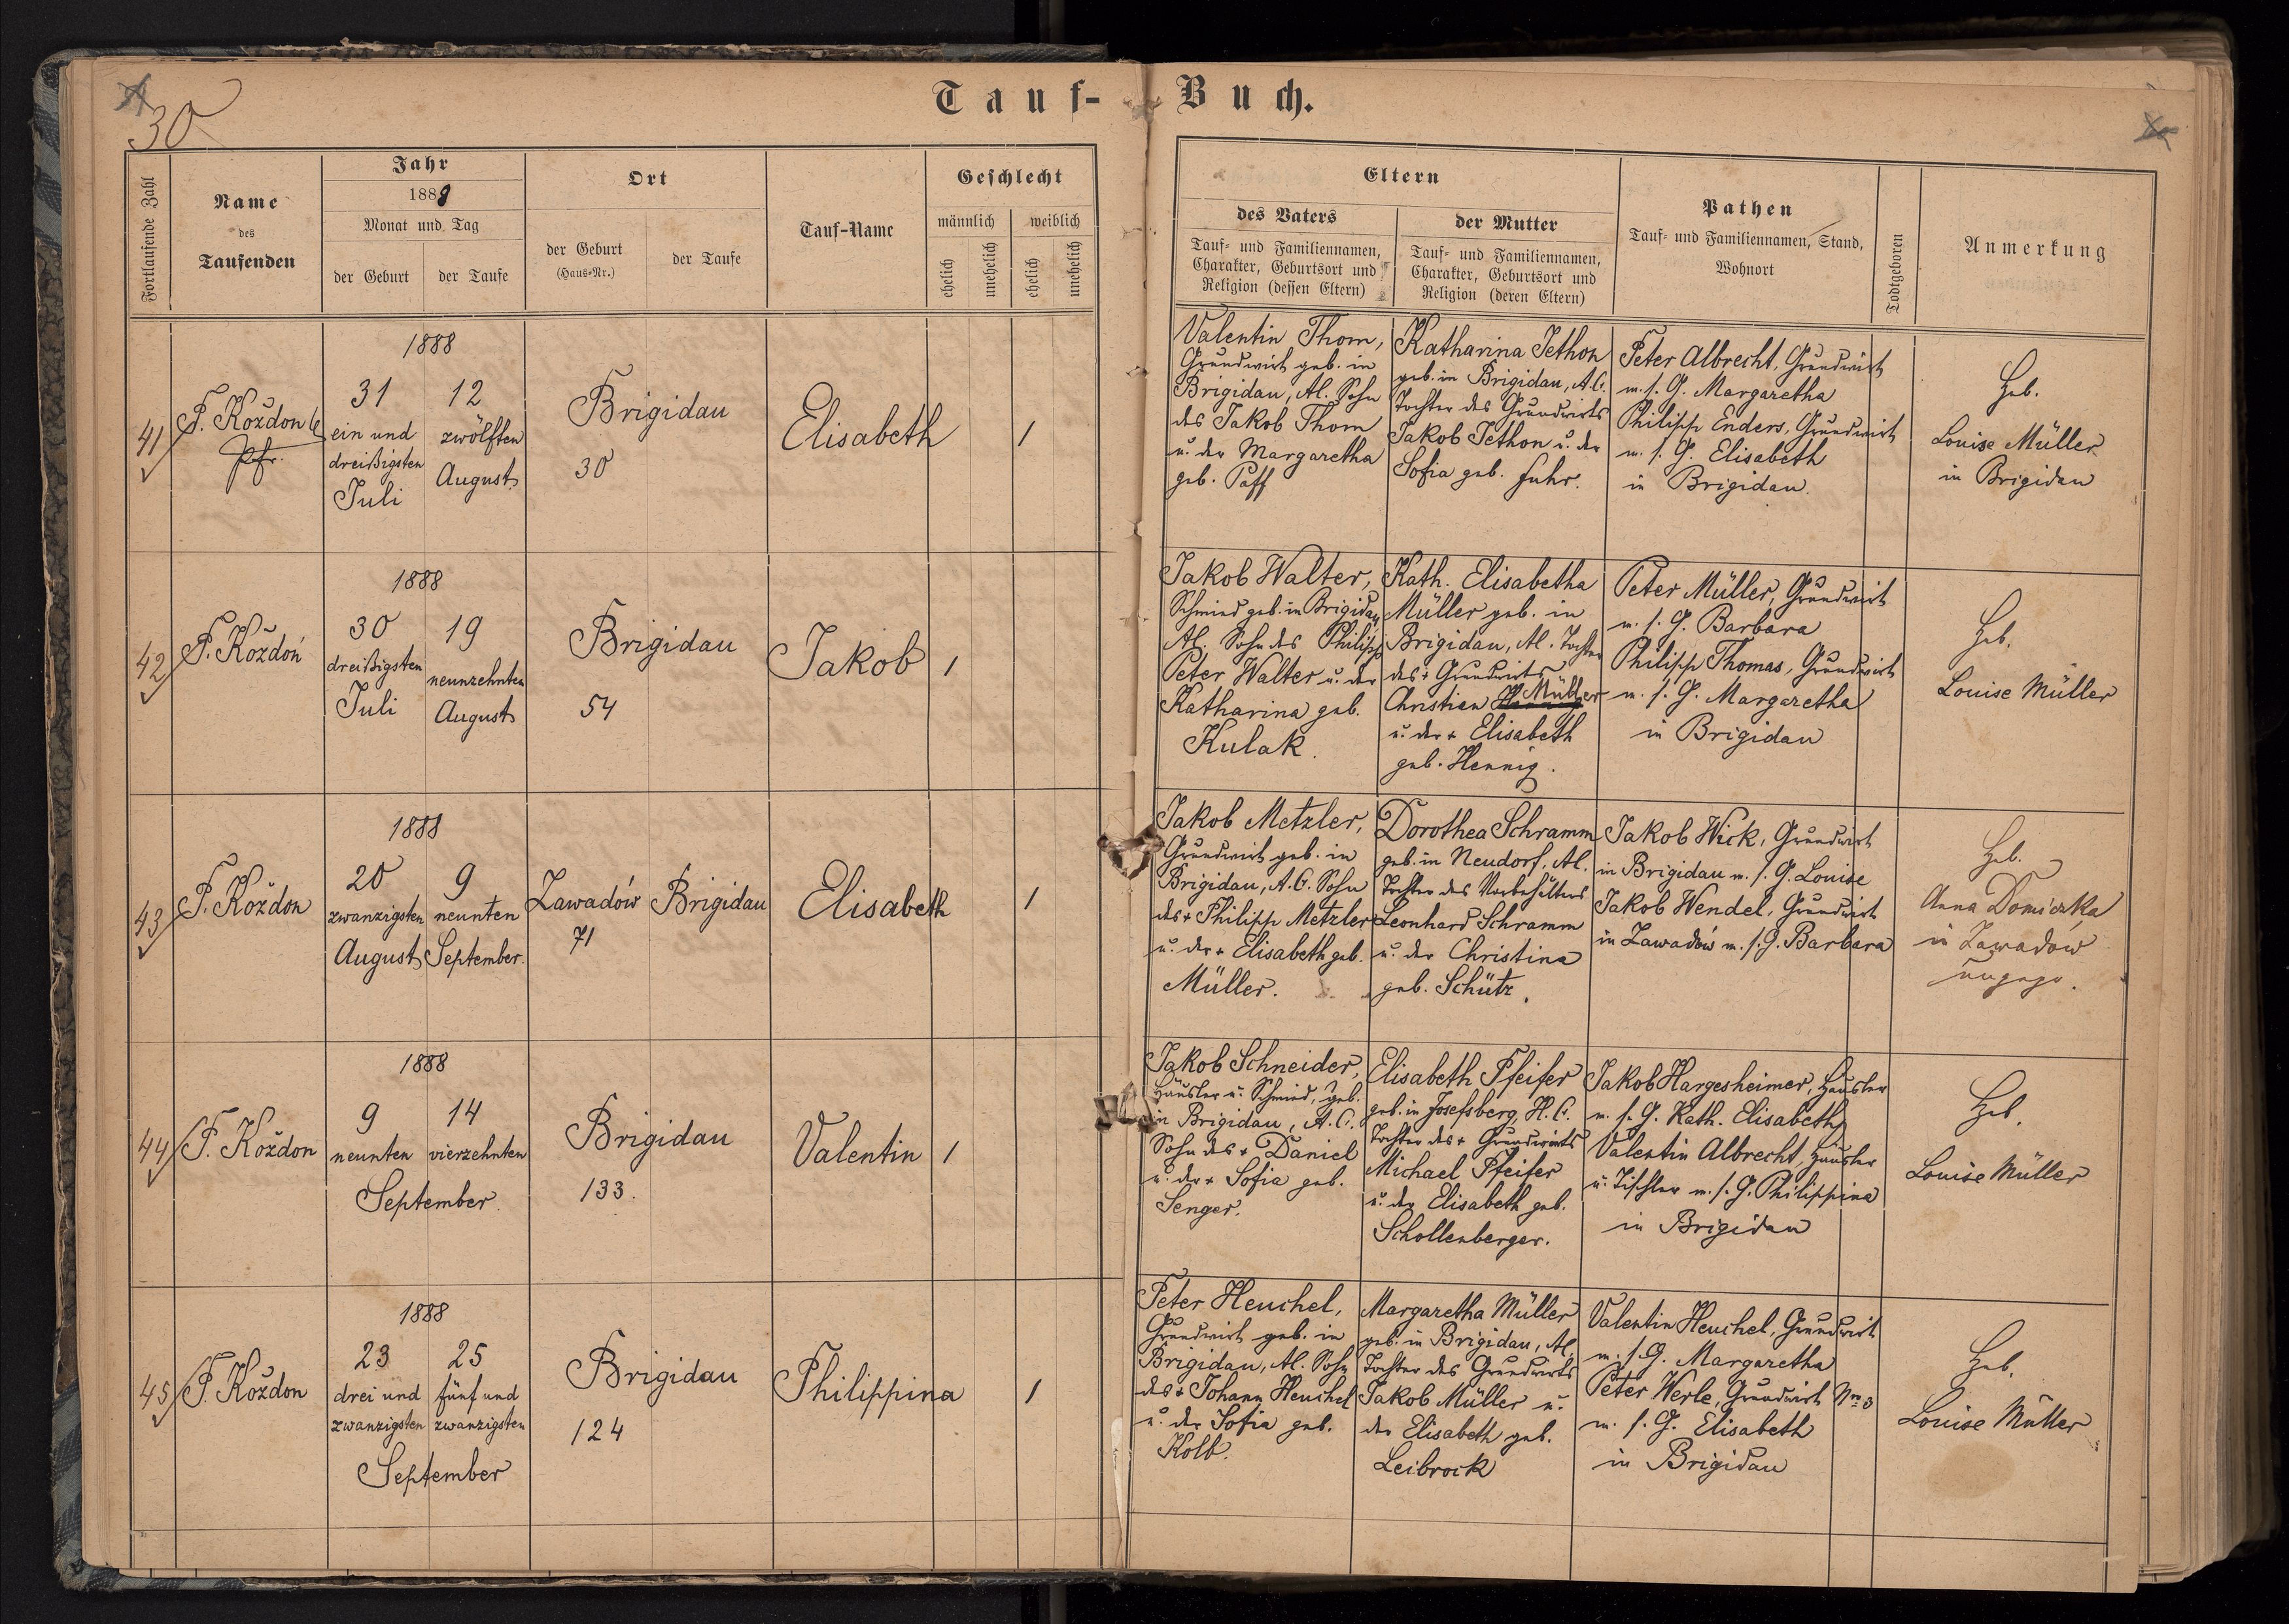 30
Tauf-Buch.
Fortlaufende Zahl
Name
des
Taufenden
Jahr
1888
Monat und Tag
der Geburt
der Taufe
Ort
der Geburt
(Haus-Nr.)
der Taufe
Tauf-Name
Geschlecht
männlich
weiblich
ehelich
unehelich
ehelich
unehelich
Eltern
des Vaters
Tauf- und Familiennamen,
Charakter, Geburtsort und
Religion (dessen Eltern)
der Mutter
Tauf- und Familiennamen,
Charakter, Geburtsort und
Religion (deren Eltern)
Pathen
Tauf- und Familiennamen, Stand,
Wohnort
Todtgeboren
Anmerkung
41
F. Koždon
Pfr.
1888
31
ein und
dreißigsten
Juli
12
zwölften
August
Brigidau
30
Elisabeth
1
Valentin Thom,
Grundwirt geb. in
Brigidau, AC. Sohn
des Jakob Thom
u. der Margaretha
geb. Paff
Katharina Jethon
geb. in Brigidau, A.C.
Tochter des Grundwirts
Jakob Jethon u. der
Sofia geb. Fuhr.
Peter Albrecht, Grundwirt
m. s. G. Margaretha
Philipp Enders, Grundwirt
m. s. G. Elisabeth
in Brigidau.
Heb.
Louise Müller
in Brigidau
42
F. Koždoń
1888
30
dreißigsten
Juli
19
neunzehnten
August
Brigidau
54
Jakob
1
Jakob Walter,
Schmied geb. in Brigidau
AC. Sohn des Philipp
Peter Walter u. der
Katharina geb.
Kulak.
Kath. Elisabetha
Müller geb. in
Brigidau, AC. Tochter
des + Grundwirts
Christian Müller
u. der + Elisabeth
geb. Hennig.
Peter Müller, Grundwirt
m. s. G. Barbara
Philipp Thomas, Grundwirt
m. s. G. Margaretha
in Brigidau
Heb.
Louise Müller
43
F. Koždon
1888
20
zwanzigsten
August
9
neunten
September.
Zawadów
71
Brigidau
Elisabeth
1
Jakob Metzler,
Grundwirt geb. in
Brigidau, A.C. Sohn
des + Philipp Metzler
u. der + Elisabeth geb.
Müller.
Dorothea Schramm
geb. in Neudorf, AC.
Tochter des Vorbehälters
Leonhard Schramm
u. der Christina
geb. Schütz.
Jakob Wick, Grundwirt
in Brigidau m. s. G. Louise
Jakob Wendel, Grundwirt
in Zawadów m. s. G. Barbara
Heb.
Anna Domiczka
in Zawadów
44
F. Koždon
1888
9
neunten
14
vierzehnten
September.
Brigidau
133.
Valentin
1
Jakob Schneider,
Häusler u. Schmied, geb.
in Brigidau, A.C.
Sohn des + Daniel
u. der + Sofia geb.
Senger.
Elisabeth Pfeifer
geb. in Josefsberg, H.C.
Tochter des + Grundwirts
Michael Pfeifer
u. der Elisabeth geb.
Schollenberger.
Jakob Hargesheimer, Häusler
m. s. G. Kath. Elisabeth
Valentin Albrecht, Häusler
u. Tischler m. s. G. Philippina
in Brigidau
Heb.
Louise Müller
45
F. Koždon
1888
23
drei und
zwanzigsten
25
fünf und
zwanzigsten
September
Brigidau
124
Philippina
1
Peter Heuchel,
Grundwirt geb. in
Brigidau, AC. Sohn
des + Johann Heuchel
u. der Sofia geb.
Kolb.
Margaretha Müller
geb. in Brigidau, AC.
Tochter des Grundwirts
Jakob Müller u.
der Elisabeth geb.
Leibrock
Valentin Heuchel, Grundwirt
m. s. G. Margaretha
Peter Werle, Grundwirt Nro 3
m. s. G. Elisabeth
in Brigidau
Heb.
Louise Müller